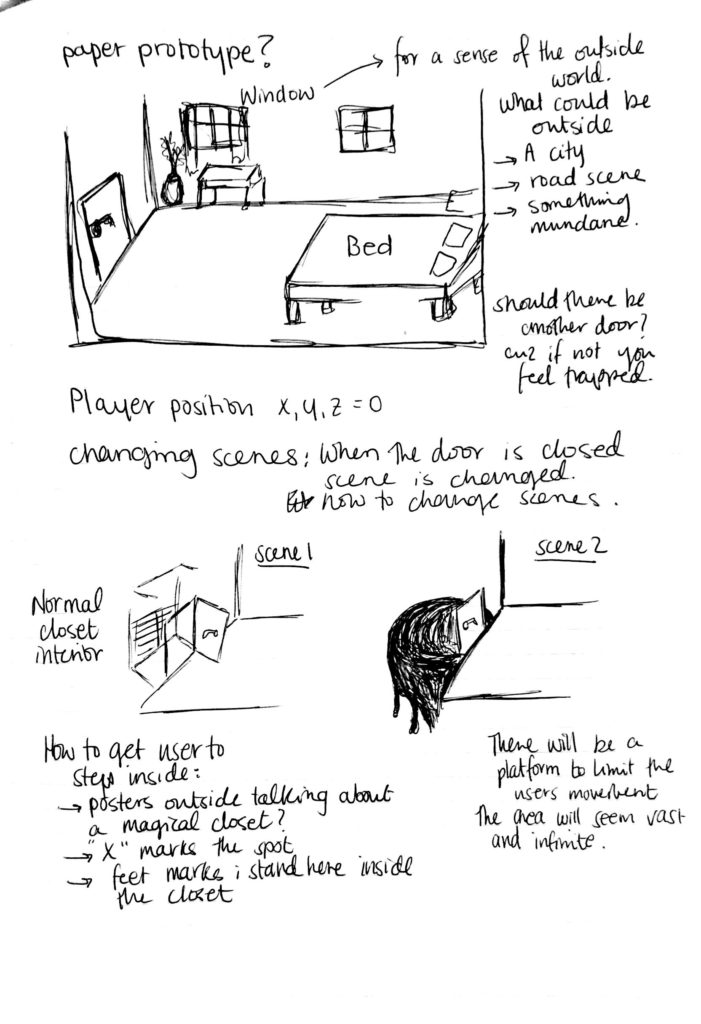 paper prototype?
Window
for a sense of the outside
world.
What could be
outside
→ A city
→ road scene
→ something
mundane.
Bed
should there be
another door?
cuz if not you
feel trapped.
Player position x,y,z = 0
changing scenes: When the door is closed
scene is changed.
how to change scenes.
scene 1
scene 2
Normal
closet
interior
How to get user to
step inside:
→ posters outside talking about
a magical closet?
→ "X" marks the spot
→ feet marks i stand here inside
the closet
There will be a
platform to limit the
users movement
The area will seem vast
and infinite.